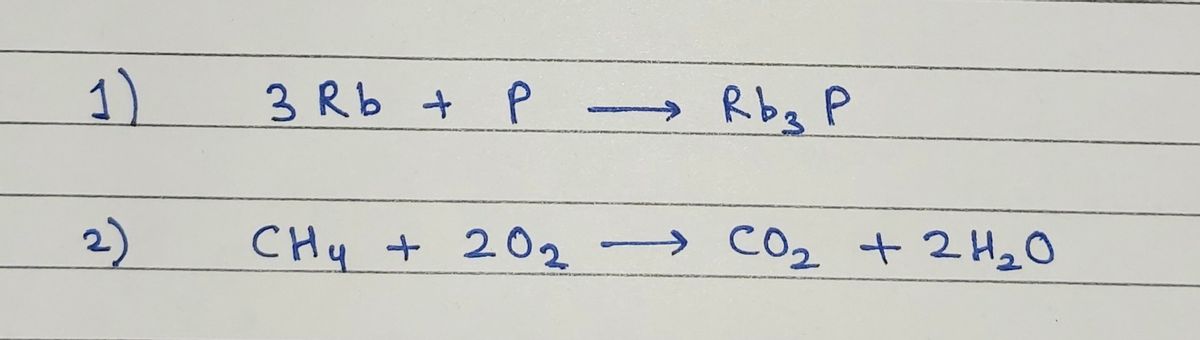 1) 3 Rb + P ⟶ Rb₃ P
2) CH₄ + 2O₂ ⟶ CO₂ + 2H₂O